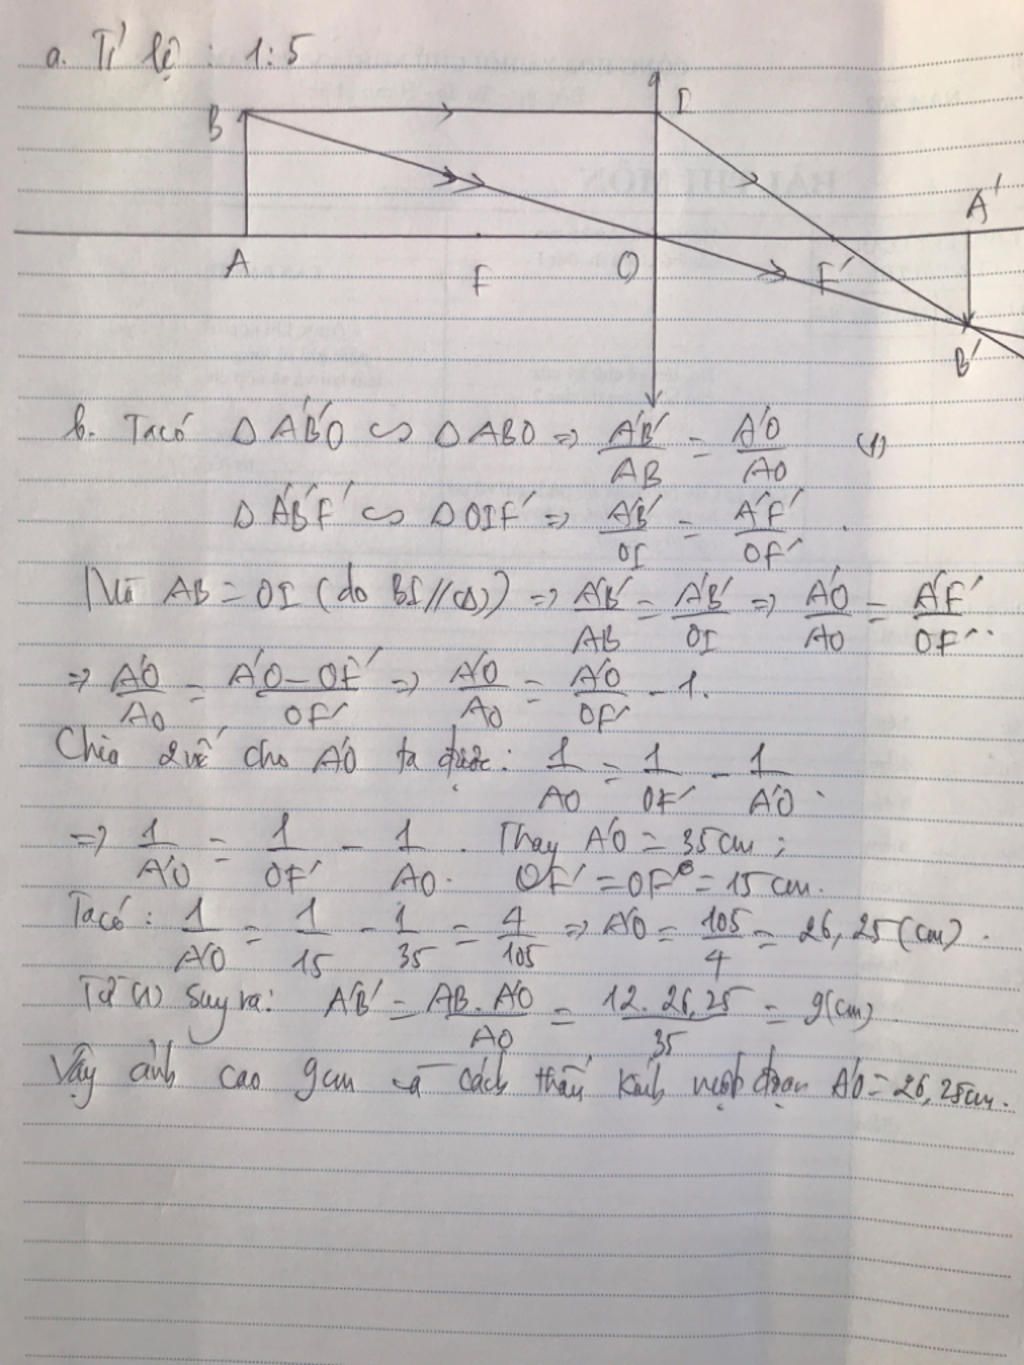 a. Tỉ lệ : 1:5
B I
A F O F' A' B'
b. Ta có Δ A'B'O ∽ Δ ABO => A'B'/AB = A'O/AO (1)
Δ A'B'F' ∽ Δ OIF' => A'B'/OI = A'F'/OF'.
Mà AB = OI (do BI//(Δ)) => A'B'/AB = A'B'/OI => A'O/AO = A'F'/OF'.
=> A'O/AO = A'O-OF'/OF' => A'O/AO = A'O/OF' - 1.
Chia 2 vế cho A'O ta được: 1/AO = 1/OF' - 1/A'O.
=> 1/A'O = 1/OF' - 1/AO. Thay A'O = 35cm; OF' = OF = 15cm.
Ta có: 1/A'O = 1/15 - 1/35 = 4/105 => A'O = 105/4 = 26,25 (cm).
Từ (1) suy ra: A'B' = AB.A'O/AO = 12.26,25/35 = 9(cm).
Vậy ảnh cao 9cm và cách thấu kính một đoạn A'O = 26,25cm.